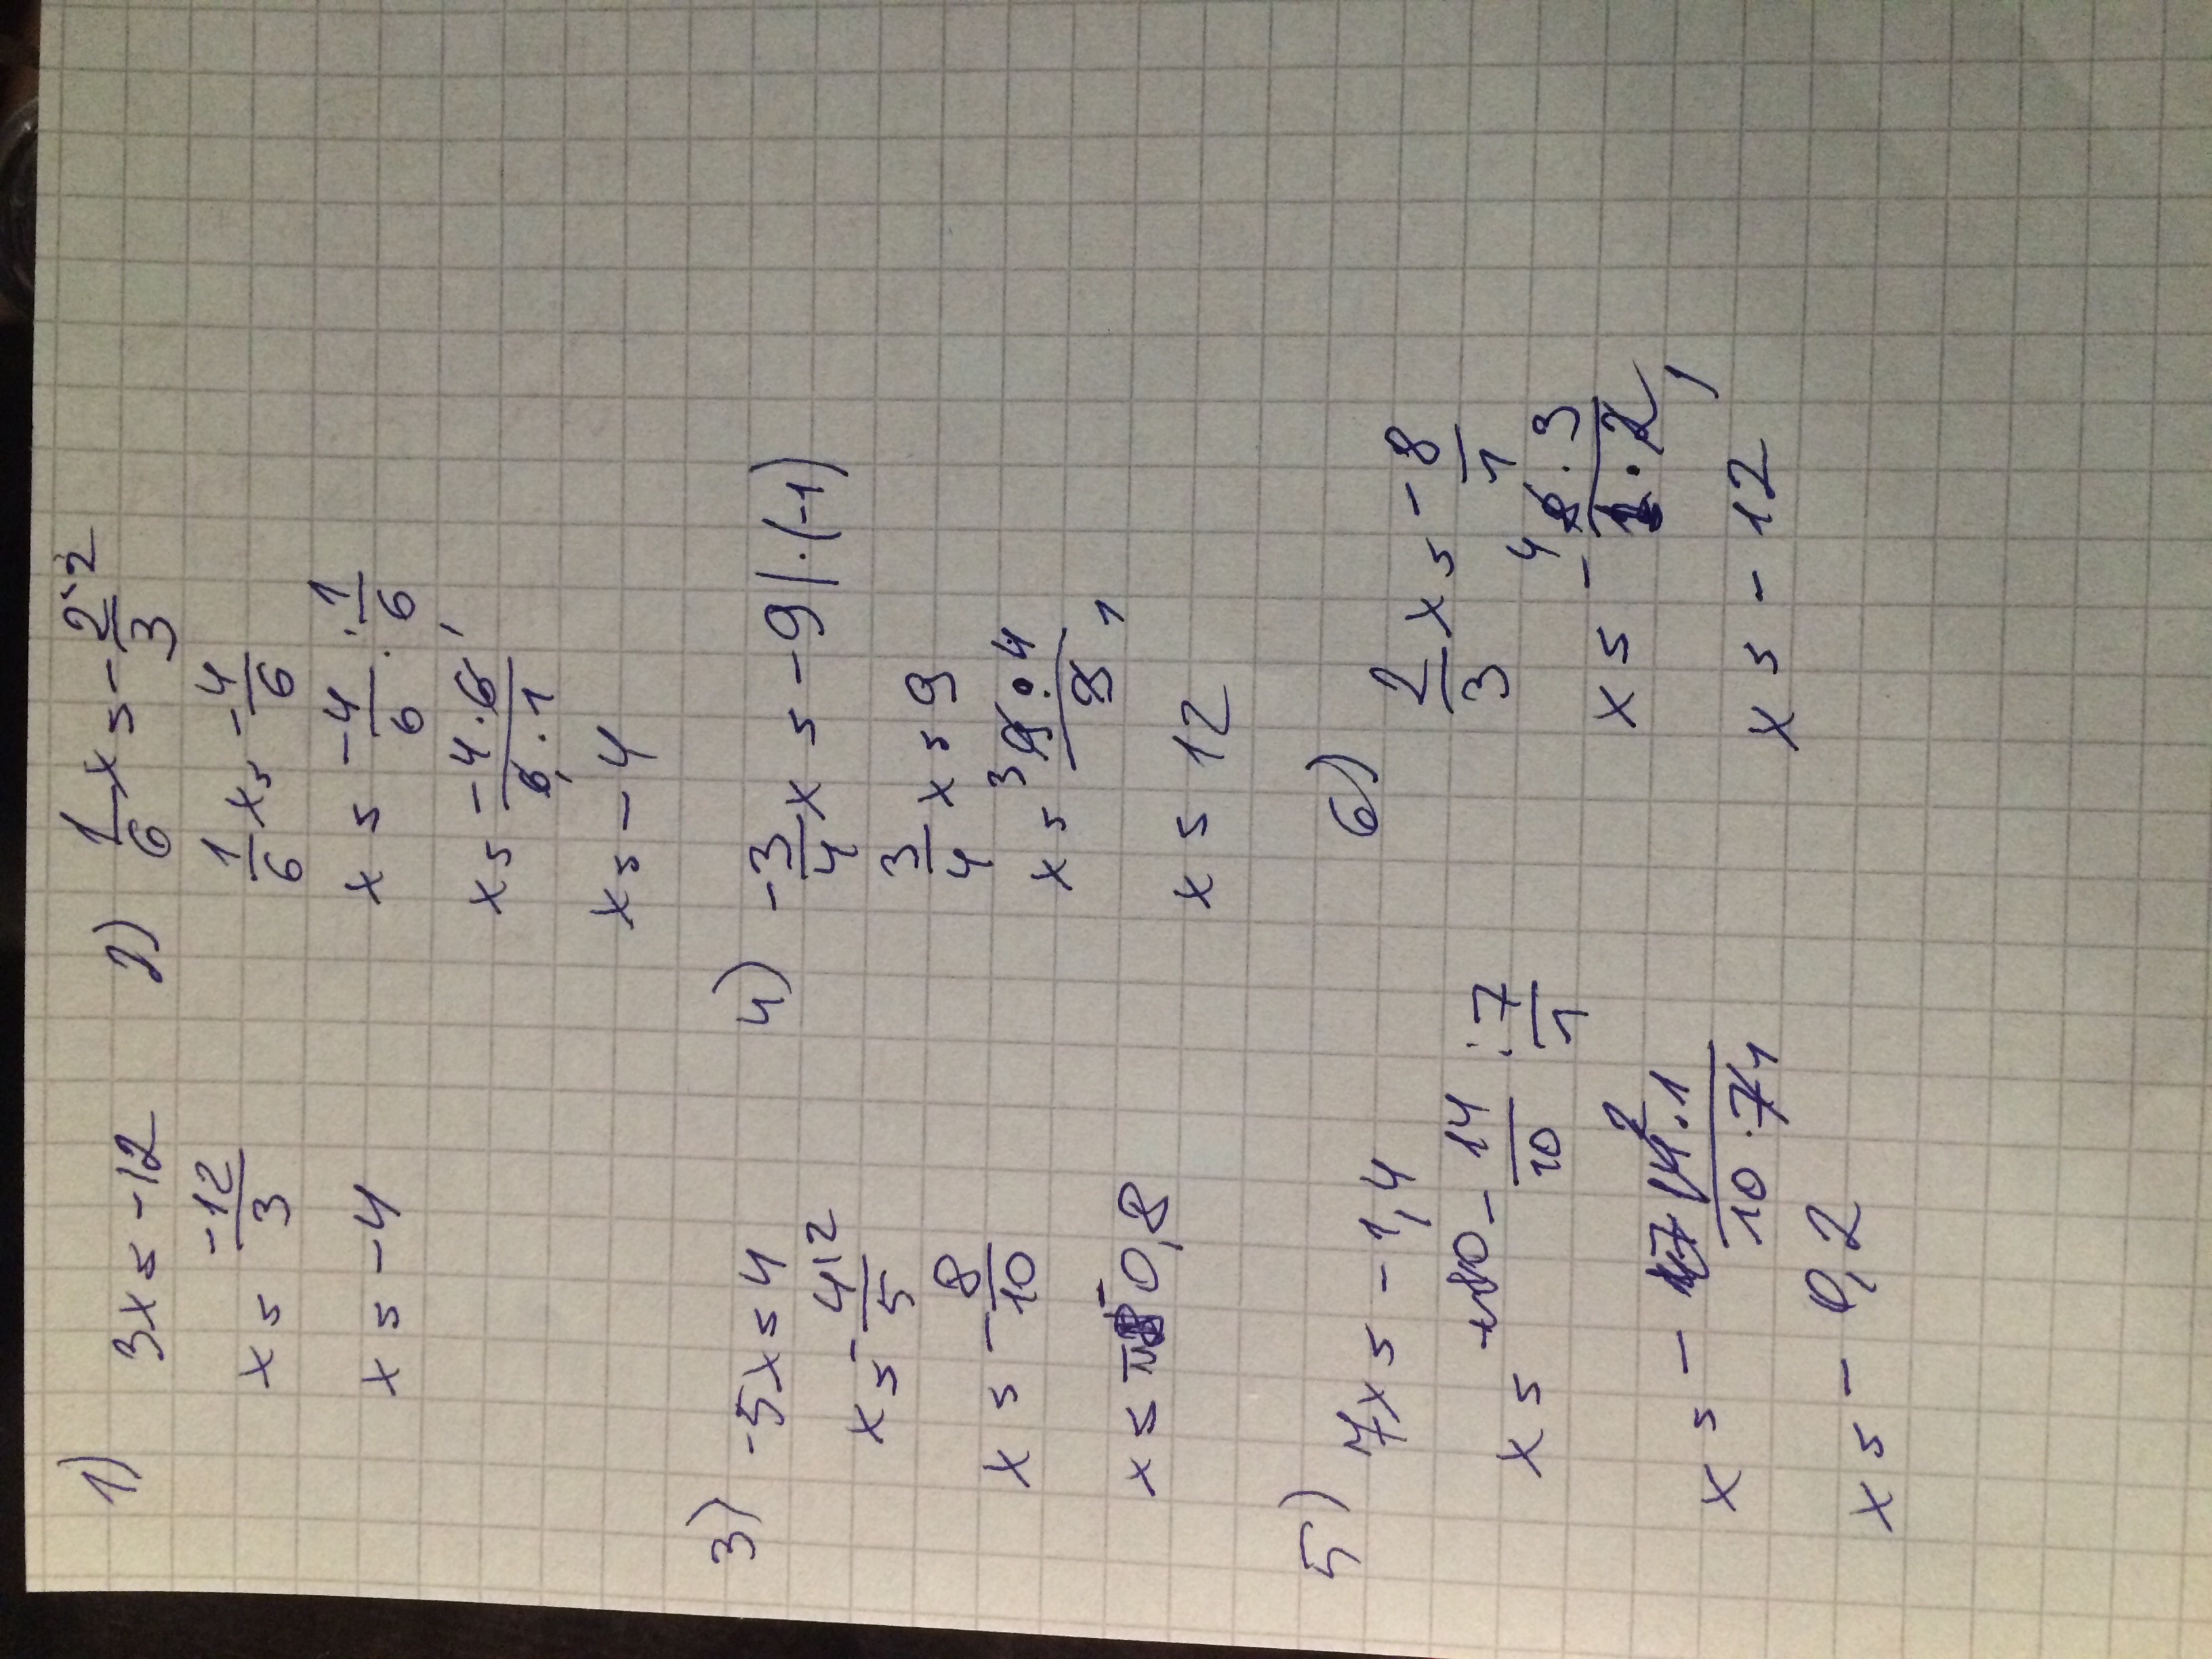 1) 3x = -12
x = -12/3
x = -4
2) 1/6 x = -2/3 ·2
1/6 x = -4/6
x = -4/6 : 1/6
x = -4·6/6·1
x = -4
3) -5x = 4
x = -4/5 |2
x = -8/10
x = -0,8
4) -3/4 x = -9 |·(-1)
3/4 x = 9
x = 9·4/3 3 1
x = 12
5) 7x = -1,4
x = -14/10 : 7/1
x = -14·1/10·7 2 1
x = -0,2
6) 2/3 x = -8/1
x = -8·3/1·2 4 1
x = -12